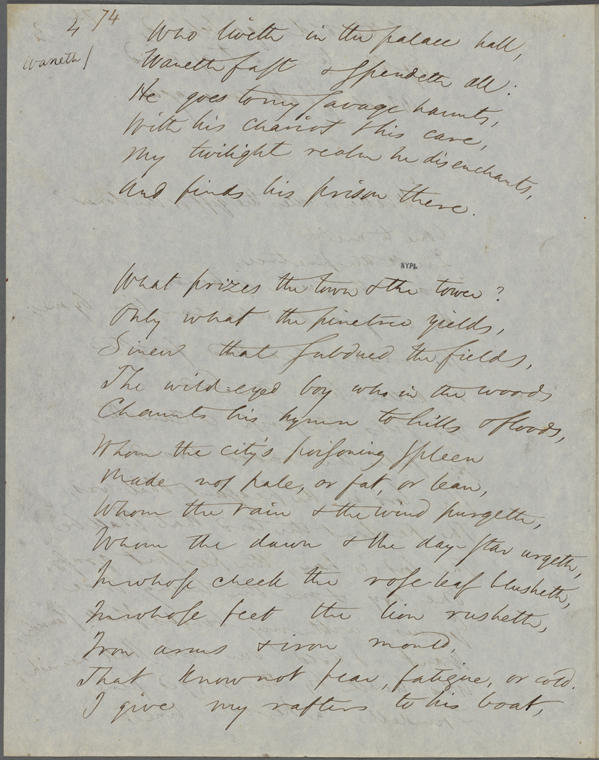 4 74
waneth/
Who liveth in the palace hall,
Waneth fast & spendeth all:
He goes to my savage haunts,
With his chariot & his care,
My twilight realm he disenchants,
And finds his prison there.
NYPL
What prizes the town & the tower?
Only what the pinetree yields,
Sinew that subdued the fields,
The wild-eyed boy who in the woods
Chaunts his hymn to hills & floods,
Whom the city's poisoning spleen
Made not pale, or fat, or lean,
Whom the rain & the wind purgeth,
Whom the dawn & the day-star urgeth,
In whose cheek the rose-leaf blusheth,
In whose feet the lion rusheth,
Iron arms & iron mould,
That know not fear, fatigue, or cold.
I give my rafters to his boat,